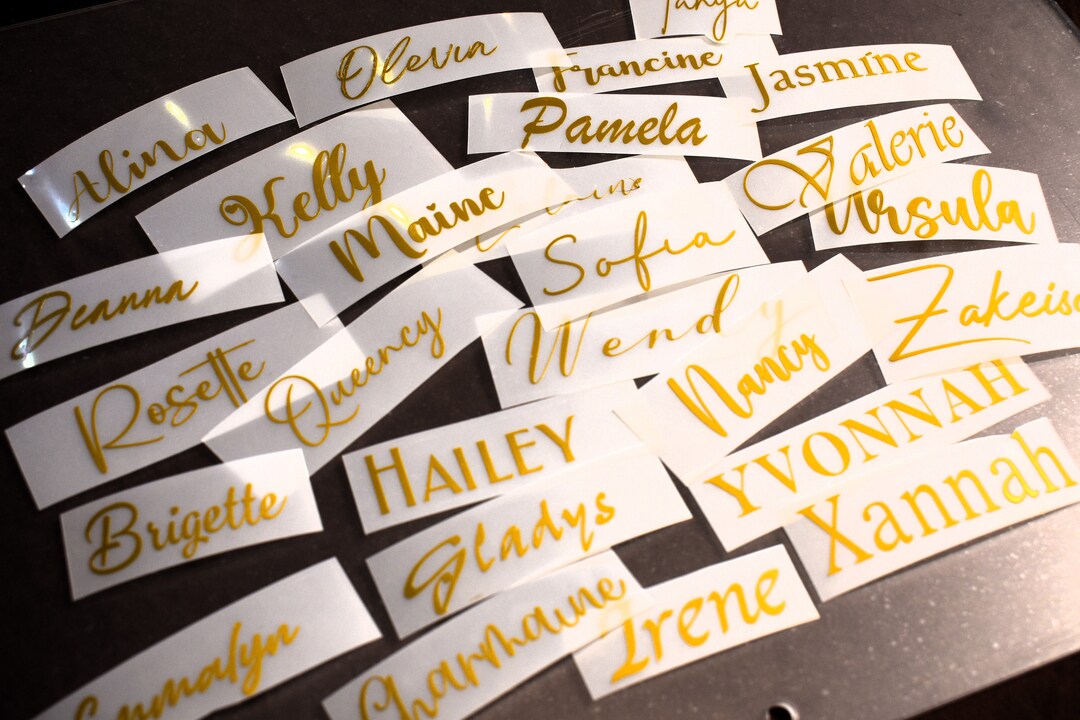 Tanya
Olevia
Francine
Jasmine
Alina
Pamela
Kelly
Valerie
Maine
Ursula
Sofia
Deanna
Zakeisc
Wend
Queency
Rosette
Nancy
YVONNAH
HAILEY
Xannah
Brigette
Gladys
Irene
Charmaine
Emmalyn